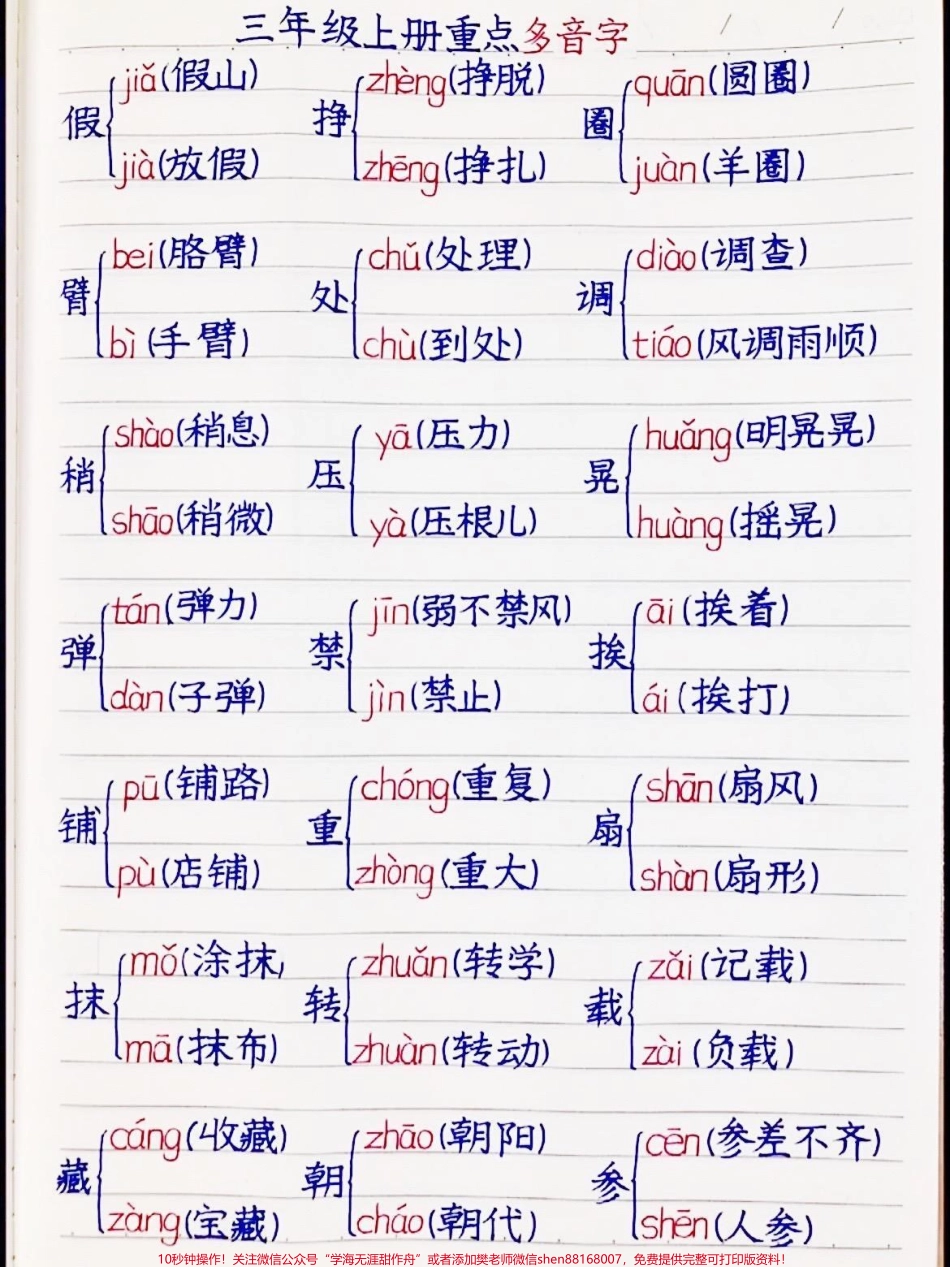 三年级上册重点多音字
假 jiǎ(假山) 挣 zhèng(挣脱) 圈 quān(圆圈)
jià(放假) zhēng(挣扎) juàn(羊圈)
臂 bei(胳臂) 处 chǔ(处理) 调 diào(调查)
bì(手臂) chù(到处) tiáo(风调雨顺)
稍 shào(稍息) 压 yā(压力) 晃 huǎng(明晃晃)
shāo(稍微) yà(压根儿) huàng(摇晃)
弹 tán(弹力) 禁 jīn(弱不禁风) 挨 āi(挨着)
dàn(子弹) jìn(禁止) ái(挨打)
铺 pū(铺路) 重 chóng(重复) 扇 shān(扇风)
pù(店铺) zhòng(重大) shàn(扇形)
抹 mǒ(涂抹) 转 zhuǎn(转学) 载 zǎi(记载)
mā(抹布) zhuàn(转动) zài(负载)
藏 cáng(收藏) 朝 zhāo(朝阳) 参 cēn(参差不齐)
zàng(宝藏) cháo(朝代) shēn(人参)
10秒钟操作！关注微信公众号“学海无涯甜作舟”或者添加樊老师微信shen88168007，免费提供完整可打印版资料！